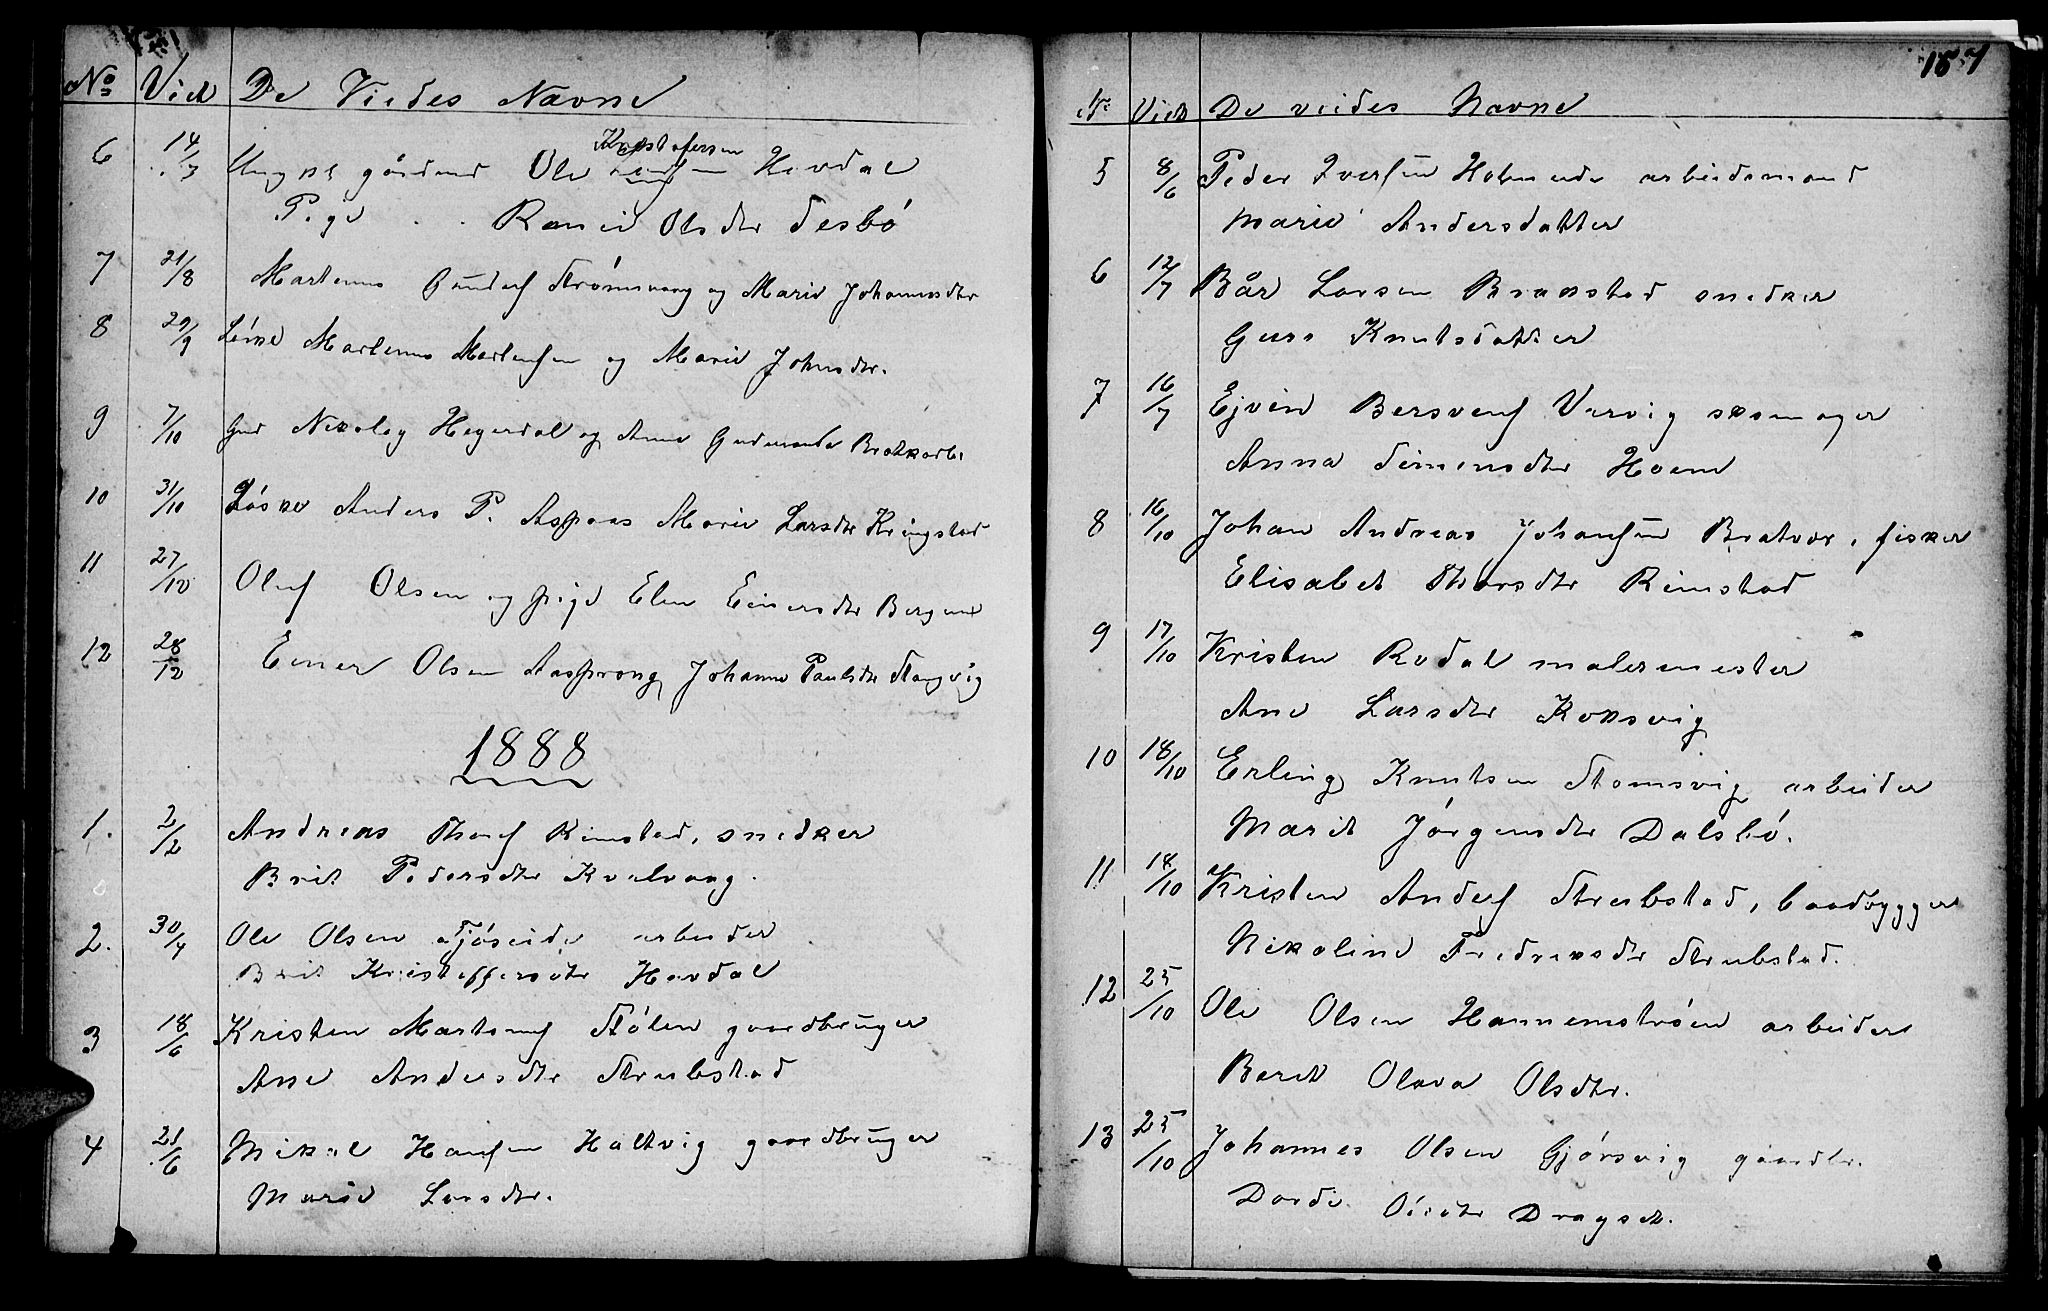 No Vied De Viedes Navne
6 14/3 Ungk gårdmd Ole Kristofersen Hevdal
Pige Olsdtr Sesbö
7 21/8 Martenus Strömsvaag og Marie Johannesdtr
8 29/9 Martenus Martensen og Marie Johnsdtr.
9 7/10 Nekolay Hegerdal og Anne
10 31/10 Anders P. Aspaas Marie Larsdtr Kringstad
11 27/12 Oluf Olsen og pige Elen Einersdtr
12 28/12 Einer Olsen Aasprong Johanne Paulsdtr Stangvig
1888
1. 2/2 Andreas Rimstad, snedker
Brit Pedersdtr Kvalvaag.
2. 30/4 Ole Olsen arbeider
Brit Kristoffersdtr Hevdal
3 18/6 Kristen Martenus Stölen gaardbruger
Ane Andersdtr Strubstad
4 21/6 Mikal Hansen Holtvig gaardbruger
Marie Larsdtr.
157
No Vied De viedes Navne
5 8/6 Peder Iversen arbeidsmand
Marie Andersdatter
6 12/7 Bår Larsen Brakstad snedker
Guro Knutsdatter
7 16/7 Ejvin Varvig skomager
Anna Simensdtr Hoem
8 16/10 Johan Andreas Johansen Bratvær, fisker
Elisabet Thorsdtr Rimstad
9 17/10 Kristen Rodal malermester
Ane Larsdtr Korsvig
10 18/10 Erling Knutsen Stomsvig arbeider
Marit Jörgensdtr Dalsbö.
11 18/10 Kristen Anders Strubstad, baadbygger
Nikoline Fredriksdtr Strubstad.
12 25/10 Ole Olsen Hannemströen arbeider
Berit Olava Olsdtr.
13 25/10 Johannes Olsen Gjörsvig gaardbr.
Dordi Dragset.